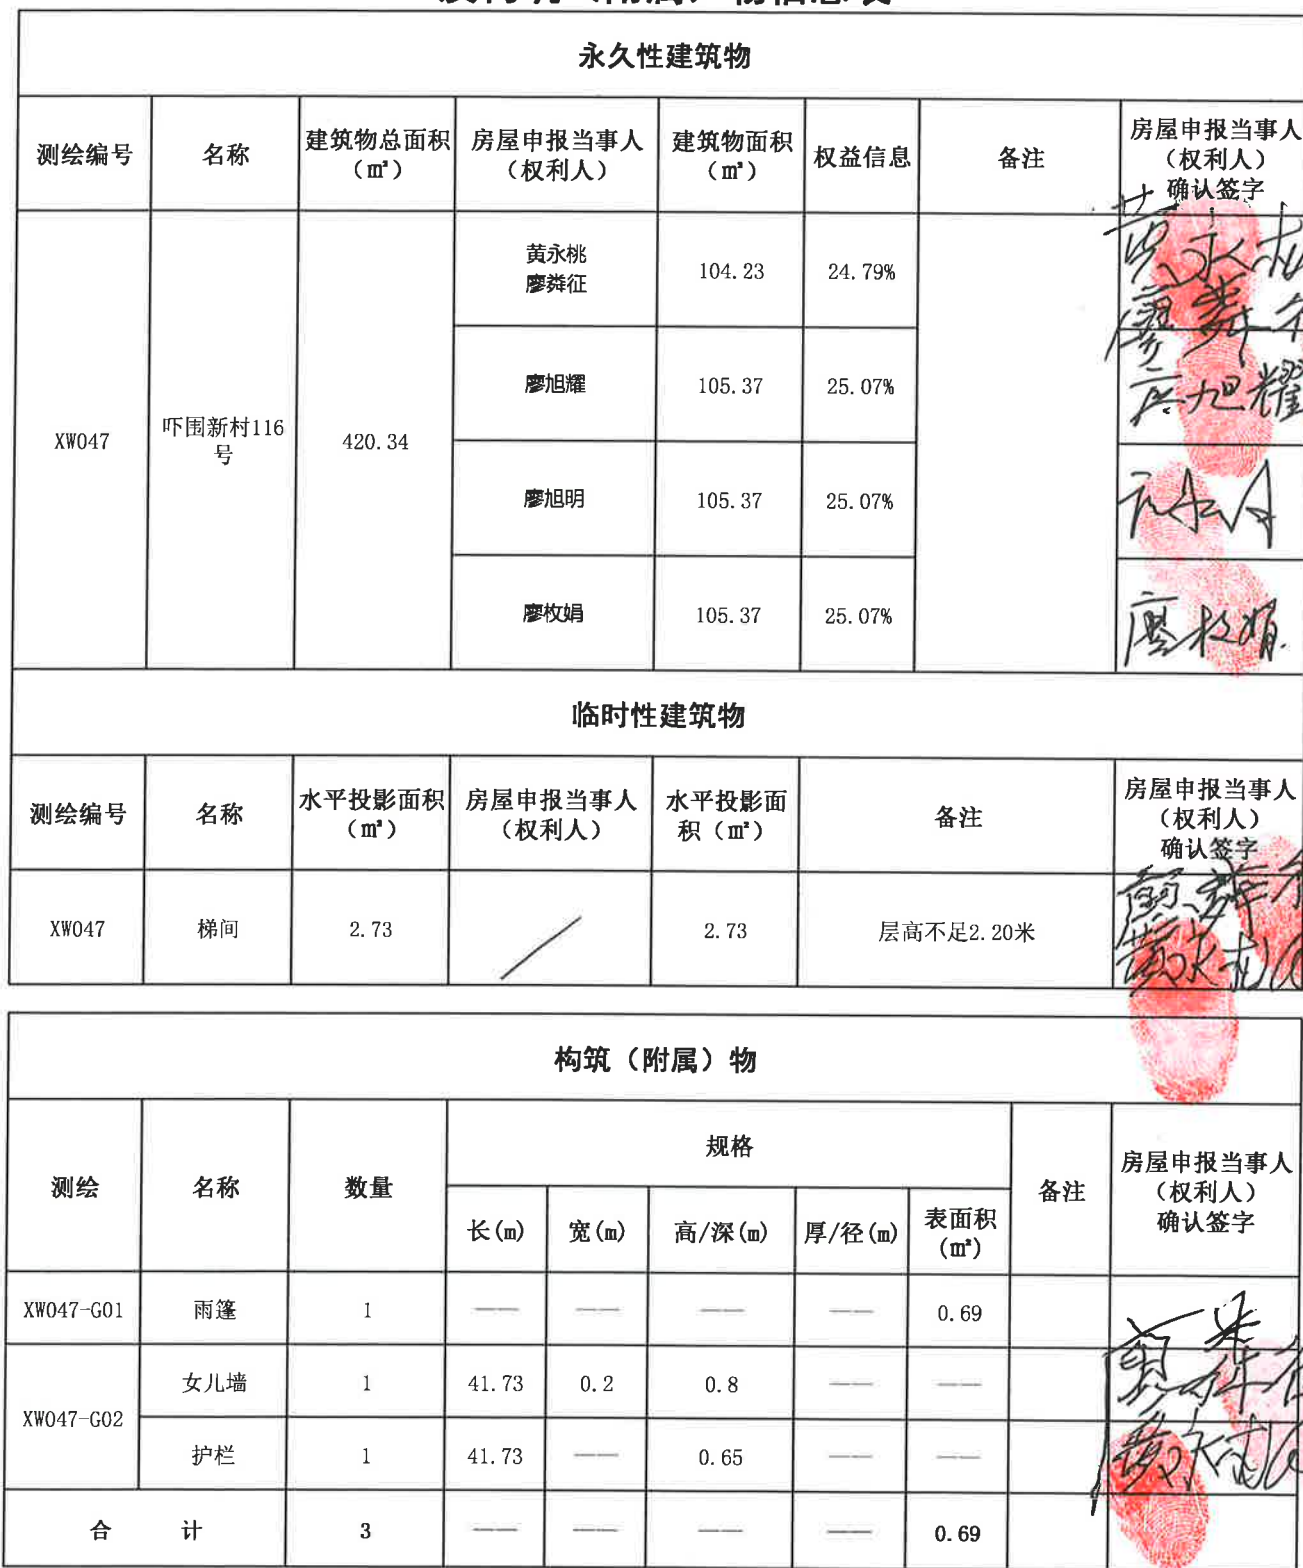 永久性建筑物
测绘编号 名称 建筑物总面积（㎡） 房屋申报当事人（权利人） 建筑物面积（㎡） 权益信息 备注 房屋申报当事人（权利人）确认签字
XW047 吓围新村116号 420.34 黄永桃 廖粦征 104.23 24.79%
廖旭耀 105.37 25.07% 廖旭耀
廖旭明 105.37 25.07%
廖枚娟 105.37 25.07% 廖枚娟
临时性建筑物
测绘编号 名称 水平投影面积（㎡） 房屋申报当事人（权利人） 水平投影面积（㎡） 备注 房屋申报当事人（权利人）确认签字
XW047 梯间 2.73 2.73 层高不足2.20米
构筑（附属）物
测绘 名称 数量 规格 备注 房屋申报当事人（权利人）确认签字
长(m) 宽(m) 高/深(m) 厚/径(m) 表面积(㎡)
XW047-G01 雨篷 1 —— —— —— —— 0.69
XW047-G02 女儿墙 1 41.73 0.2 0.8 —— ——
护栏 1 41.73 —— 0.65 —— ——
合 计 3 —— —— —— —— 0.69